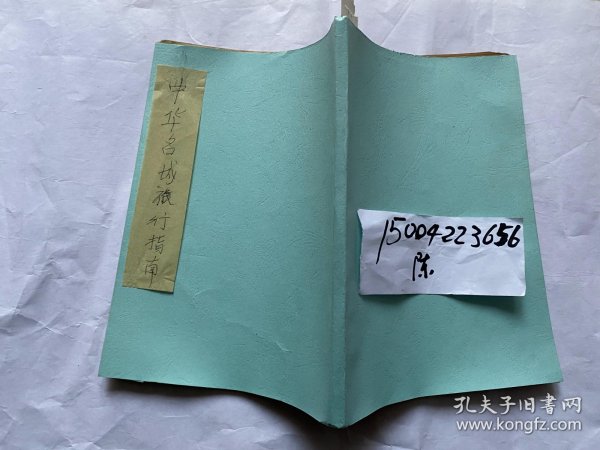 中华名城旅行指南
15004223656
陈
孔夫子旧书网
www.kongfz.com